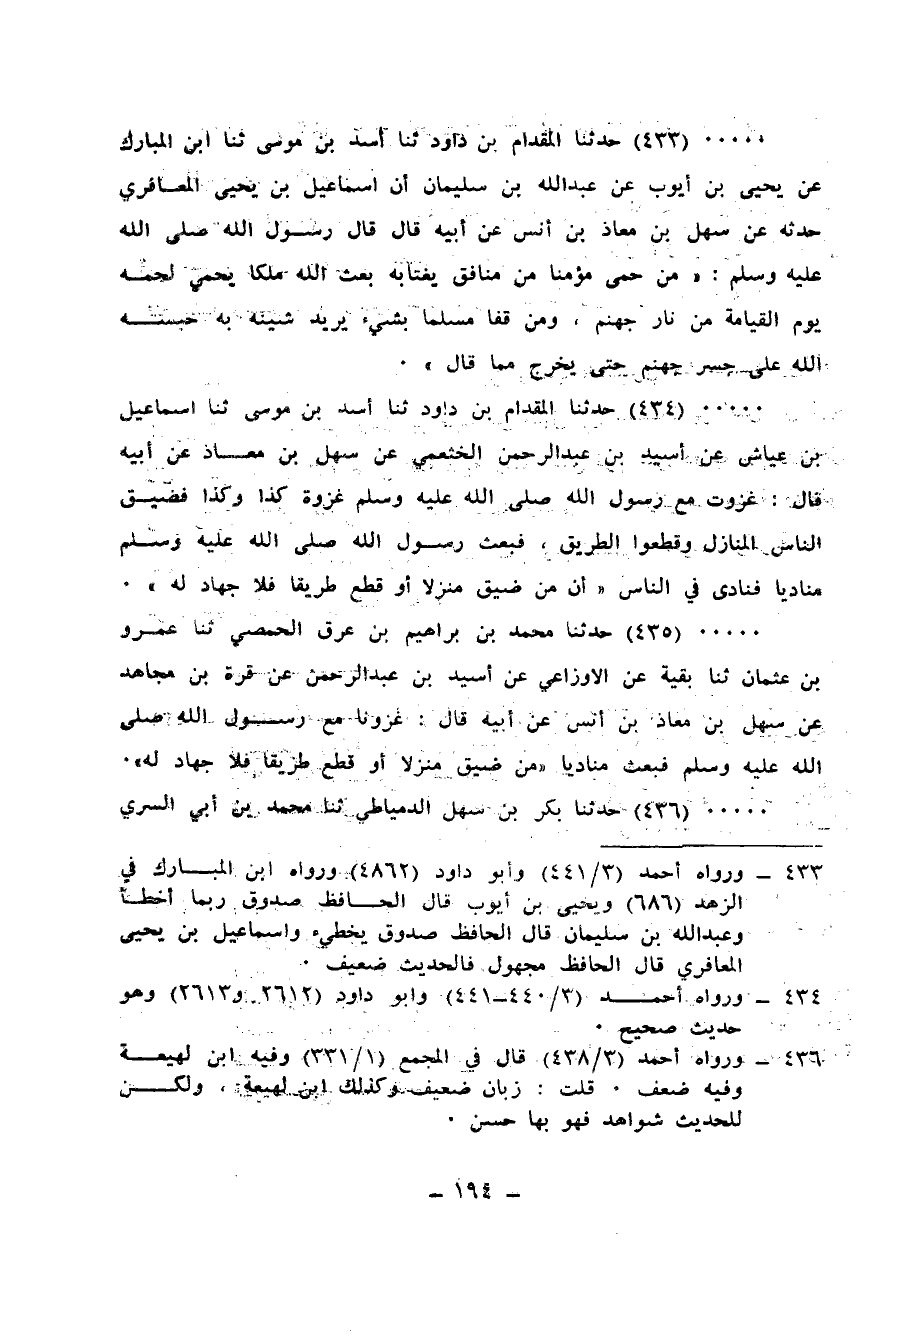 ٠٠٠٠٠ (٤٣٣) حدثنا المقدام بن داود ثنا أسد بن موسى ثنا ابن المبارك
عن يحيى بن أيوب عن عبدالله بن سليمان أن اسماعيل بن يحيى المعافري
حدثه عن سهل بن معاذ بن أنس عن أبيه قال قال رسول الله صلى الله
عليه وسلم : « من حمى مؤمنا من منافق يغتابه بعث الله ملكا يحمي لحمه
يوم القيامة من نار جهنم ، ومن قفا مسلما بشيء يريد شينه به حبسه
الله على جسر جهنم حتى يخرج مما قال » ٠
٠٠٠٠٠ (٤٣٤) حدثنا المقدام بن داود ثنا أسد بن موسى ثنا اسماعيل
بن عياش عن أسيد بن عبدالرحمن الخثعمي عن سهل بن معاذ عن أبيه
قال : غزوت مع رسول الله صلى الله عليه وسلم غزوة كذا وكذا فضيق
الناس المنازل وقطعوا الطريق ، فبعث رسول الله صلى الله عليه وسلم
مناديا فنادى في الناس « أن من ضيق منزلا أو قطع طريقا فلا جهاد له » ٠
٠٠٠٠٠ (٤٣٥) حدثنا محمد بن براهيم بن عرق الحمصي ثنا عمرو
بن عثمان ثنا بقية عن الاوزاعي عن أسيد بن عبدالرحمن عن قرة بن مجاهد
عن سهل بن معاذ بن أنس عن أبيه قال : غزونا مع رسول الله صلى
الله عليه وسلم فبعث مناديا «من ضيق منزلا أو قطع طريقا فلا جهاد له»٠
٠٠٠٠٠ (٤٣٦) حدثنا بكر بن سهل الدمياطي ثنا محمد بن أبي السري
٤٣٣ – ورواه أحمد (٤٤١/٣) وأبو داود (٤٨٦٢) ورواه ابن المبارك في
الزهد (٦٨٦) ويحيى بن أيوب قال الحافظ صدوق ربما أخطأ
وعبدالله بن سليمان قال الحافظ صدوق يخطيء واسماعيل بن يحيى
المعافري قال الحافظ مجهول فالحديث ضعيف ٠
٤٣٤ – ورواه أحمد (٤٤٠/٣–٤٤١) وابو داود (٢٦١٢ و٢٦١٣) وهو
حديث صحيح ٠
٤٣٦ – ورواه أحمد (٤٣٨/٣) قال في المجمع (٣٣١/١) وفيه ابن لهيعة
وفيه ضعف ٠ قلت : زبان ضعيف وكذلك ابن لهيعة ، ولكن
للحديث شواهد فهو بها حسن ٠
– ١٩٤ –